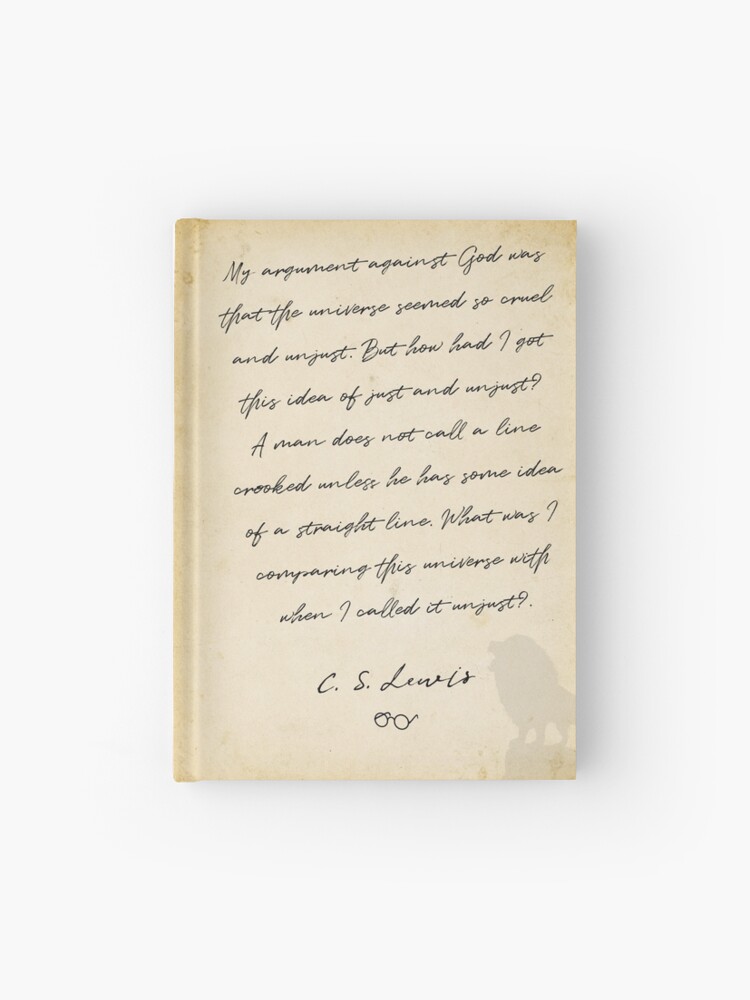 My argument against God was
that the universe seemed so cruel
and unjust. But how had I got
this idea of just and unjust?
A man does not call a line
crooked unless he has some idea
of a straight line. What was I
comparing this universe with
when I called it unjust?.
C. S. Lewis